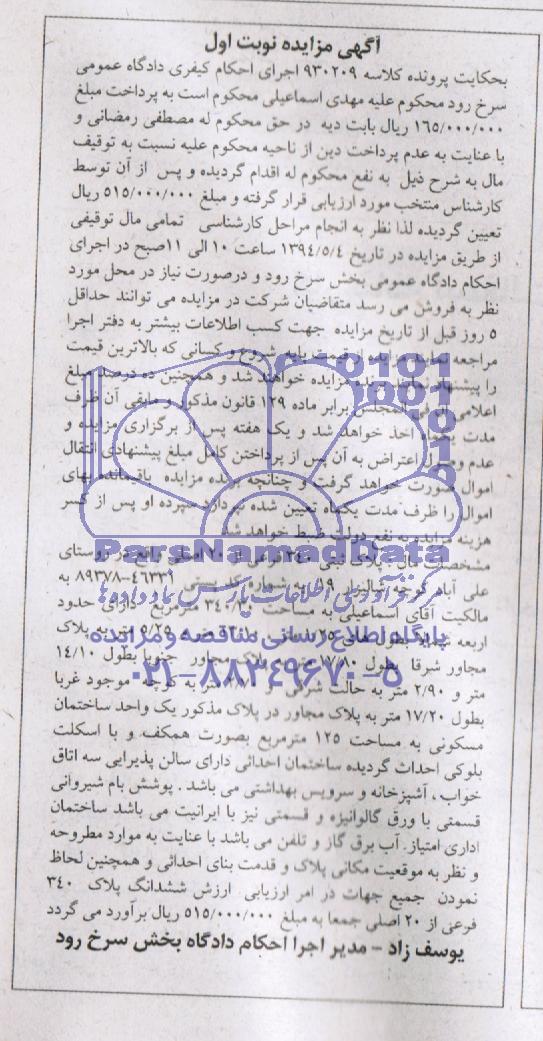 آگهی مزایده نوبت اول
بحکایت پرونده کلاسه ۹۳۰۲۰۹ اجرای احکام کیفری دادگاه عمومی
سرخ رود محکوم علیه مهدی اسماعیلی محکوم است به پرداخت مبلغ
۱۶۵/۰۰۰/۰۰۰ ریال بابت دیه در حق محکوم له مصطفی رمضانی و
با عنایت به عدم پرداخت دین از ناحیه محکوم علیه نسبت به توقیف
مال به شرح ذیل به نفع محکوم له اقدام گردیده و پس از آن توسط
کارشناس منتخب مورد ارزیابی قرار گرفته و مبلغ ۵۱۵/۰۰۰/۰۰۰ ریال
تعیین گردیده لذا نظر به انجام مراحل کارشناسی تمامی مال توقیفی
از طریق مزایده در تاریخ ۱۳۹۴/۵/۴ ساعت ۱۰ الی ۱۱صبح در اجرای
احکام دادگاه عمومی بخش سرخ رود و درصورت نیاز در محل مورد
نظر به فروش می رسد متقاضیان شرکت در مزایده می توانند حداقل
۵ روز قبل از تاریخ مزایده جهت کسب اطلاعات بیشتر به دفتر اجرا
مراجعه نمایند مزایده از قیمت پایه شروع و کسانی که بالاترین قیمت
را پیشنهاد نمایند برنده مزایده خواهند شد و همچنین ده درصد مبلغ
اعلامی فی المجلس برابر ماده ۱۲۹ قانون مذکور و مابقی آن ظرف
مدت یکماه اخذ خواهد شد و یک هفته پس از برگزاری مزایده و
عدم وصول اعتراض به آن پس از پرداختن کامل مبلغ پیشنهادی انتقال
اموال صورت خواهد گرفت و چنانچه برنده مزایده باقیمانده بهای
اموال را ظرف مدت یکماه تعیین شده نپردازد سپرده او پس از کسر
هزینه مزایده به نفع دولت ضبط خواهد شد
ParsNamadData
مشخصات مال: پلاک ثبتی ۳۴۰ فرعی از ۲۰ اصلی واقع در روستای
علی آباد کوچه به شماره کدپستی ۴۶۳۳۹-۸۹۳۷۸ به
مالکیت آقای اسماعیلی به مساحت مترمربع دارای حدود
پایگاه اطلاع رسانی مناقصه و مزایده
اربعه به پلاک
مجاور شرقا بطول ۱۷/۸۰ مجاور جنوبا بطول ۱۴/۱۰
۰۲۱-۸۸۳۴۹۶۷۰-۵
متر و ۲/۹۰ متر به حالت شرقی متر به کوچه موجود غربا
بطول ۱۷/۲۰ متر به پلاک مجاور در پلاک مذکور یک واحد ساختمان
مسکونی به مساحت ۱۲۵ مترمربع بصورت همکف و با اسکلت
بلوکی احداث گردیده ساختمان احداثی دارای سالن پذیرایی سه اتاق
خواب ، آشپزخانه و سرویس بهداشتی می باشد . پوشش بام شیروانی
قسمتی با ورق گالوانیزه و قسمتی نیز با ایرانیت می باشد ساختمان
اداری امتیاز. آب برق گاز و تلفن می باشد با عنایت به موارد مطروحه
و نظر به موقعیت مکانی پلاک و قدمت بنای احداثی و همچنین لحاظ
نمودن جمیع جهات در امر ارزیابی ارزش ششدانگ پلاک ۳۴۰
فرعی از ۲۰ اصلی جمعا به مبلغ ۵۱۵/۰۰۰/۰۰۰ ریال برآورد می گردد
یوسف زاد – مدیر اجرا احکام دادگاه بخش سرخ رود